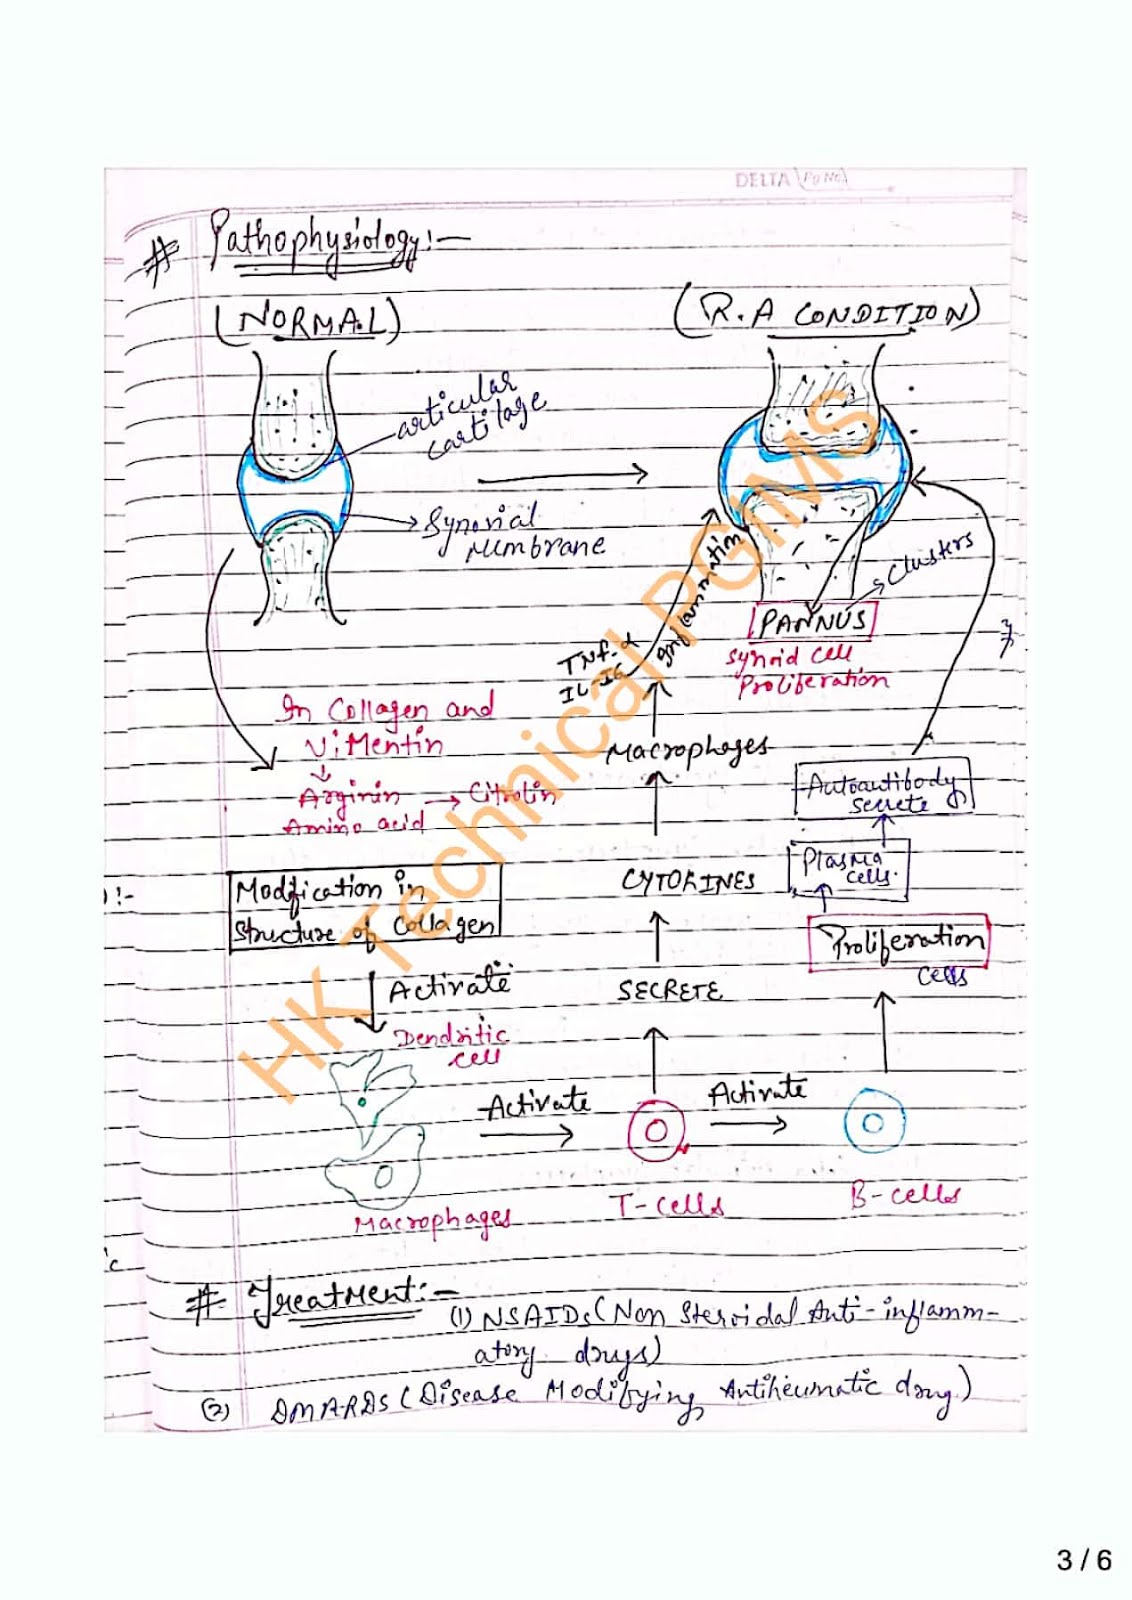 DELTA
# Pathophysiology:-
(NORMAL)
(R.A CONDITION)
articular
cartilage
Synovial
Mumbrane
Clusters
PANNUS
Synoid cell
Proliferation
TNF-α
Inflammation
In Collagen and
ViMentin
Arginin → Citrolin
Amino acid
Macrophages
Autoantibody
secrete
Plasma
cells.
CYTOKINES
Modfication in
Structure of Collagen
Proliferation
cells
Activate
SECRETE
Dendritic
cell
Activate
Activate
Macrophages
T-cells
B-cells
# Treatment:-
(1) NSAIDs (Non Steroidal Anti-inflamm-
atory drugs)
(2) DMARDS (Disease Modifying Antiheumatic drug)
HK Technical PGIMS
3 / 6